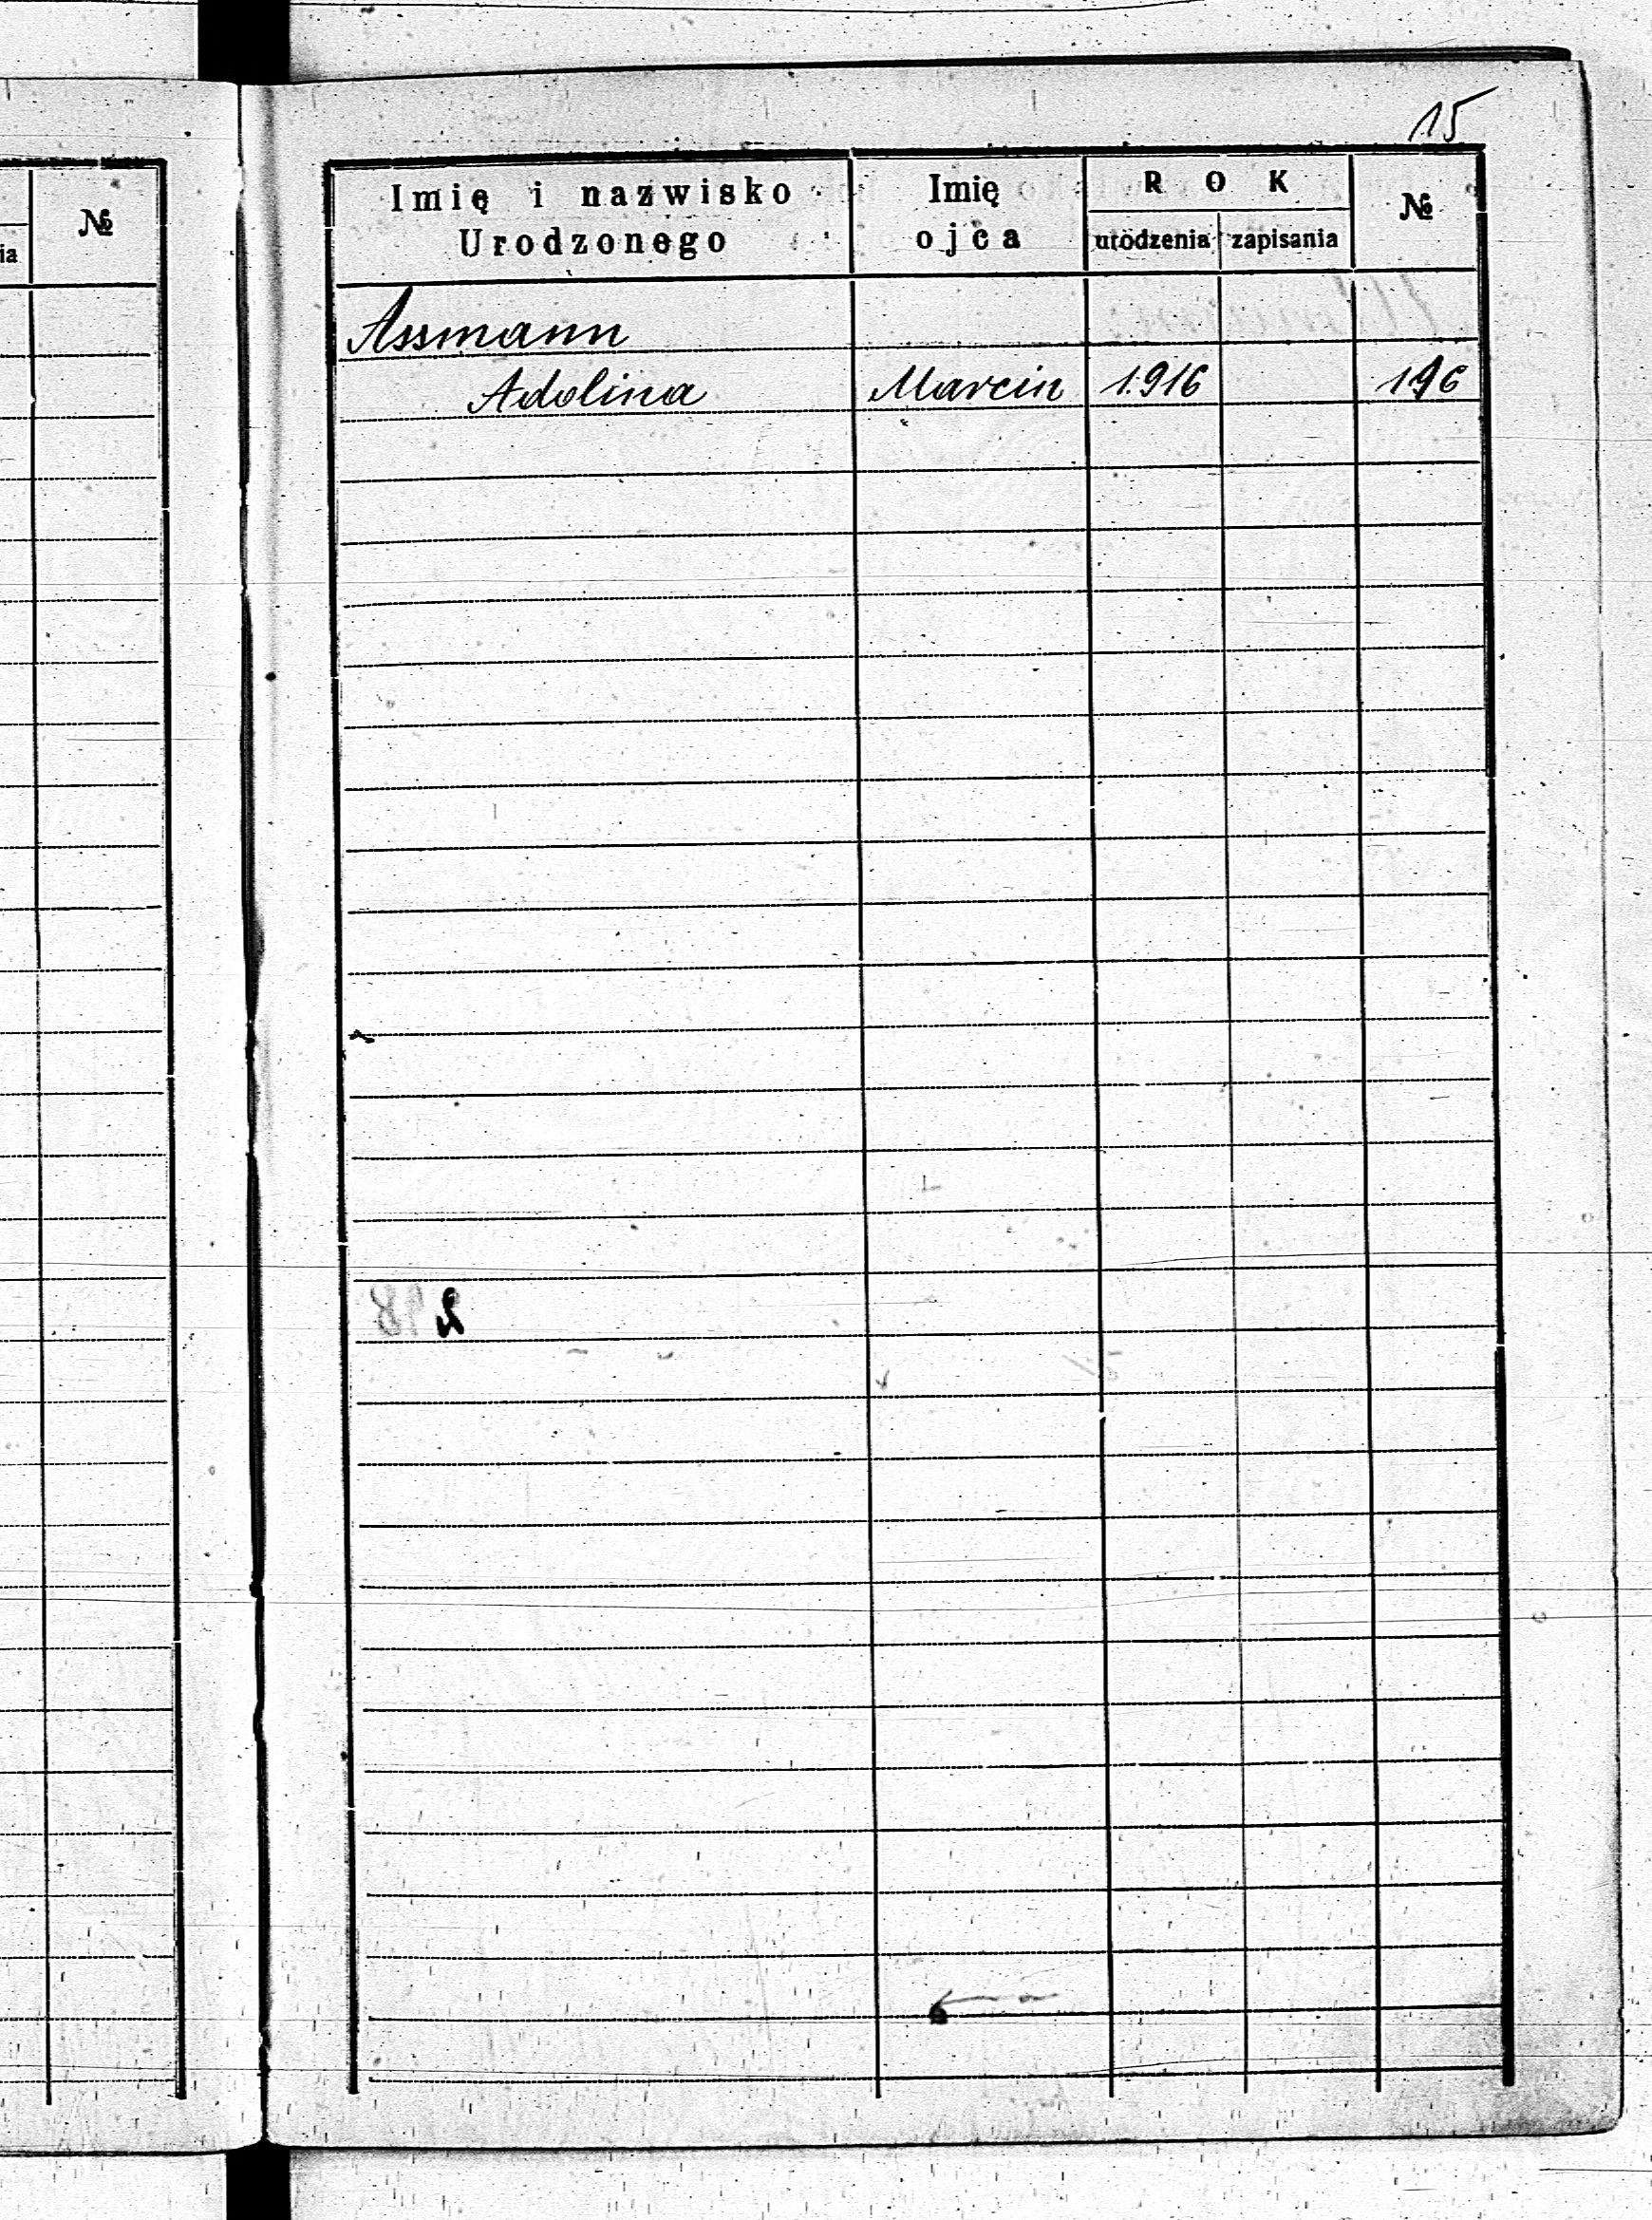 15
№
ia
Imię i nazwisko Urodzonego
Imię ojca
ROK
urodzenia
zapisania
№
Assmann
Adolina Marcin 1916 196